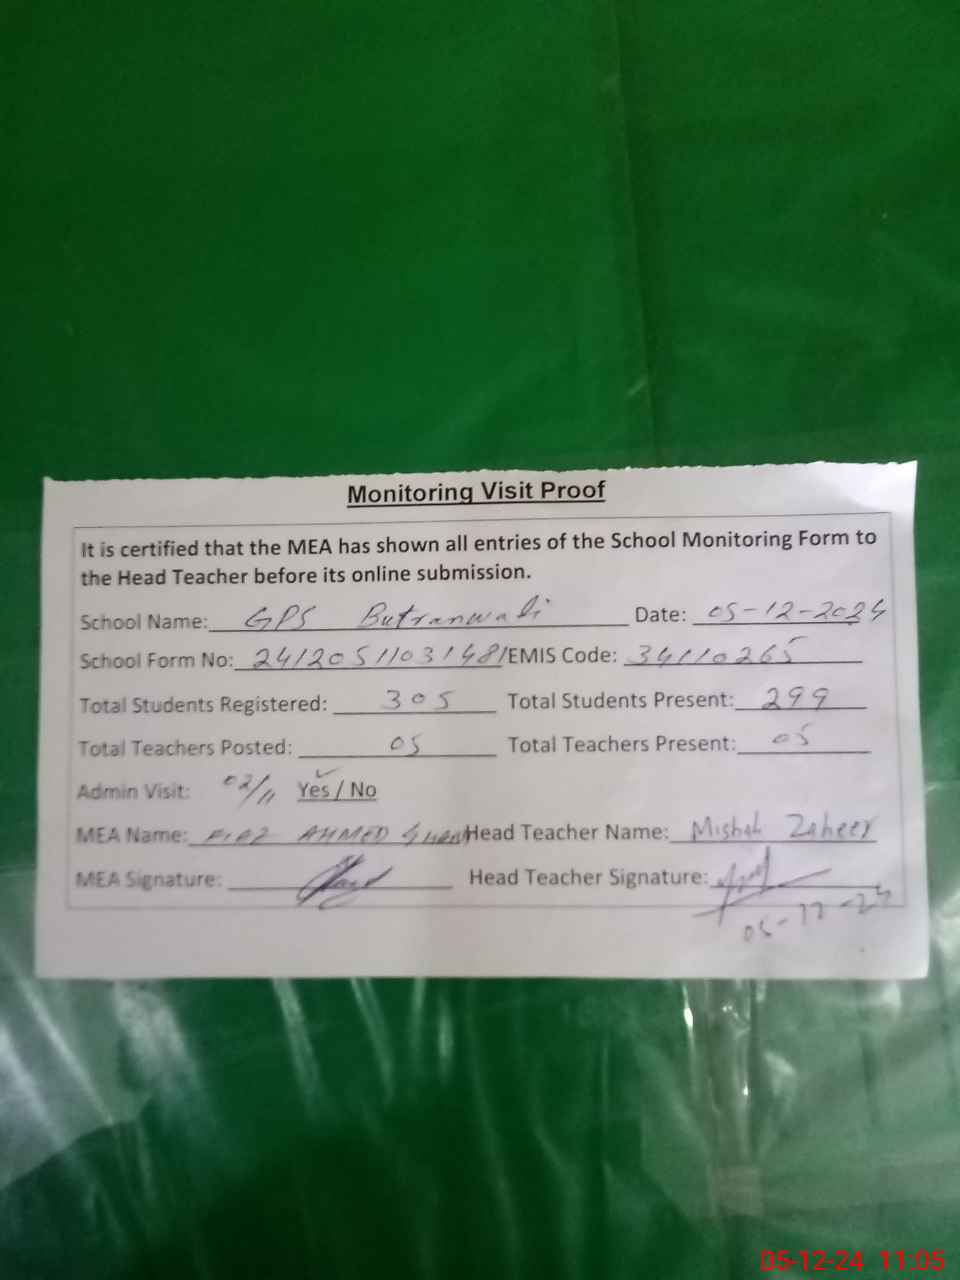 Monitoring Visit Proof
It is certified that the MEA has shown all entries of the School Monitoring Form to
the Head Teacher before its online submission.
School Name: GPS Butranwali Date: 05-12-2024
School Form No: 2412051103148/EMIS Code: 34110265
Total Students Registered: 305 Total Students Present: 299
Total Teachers Posted: 05 Total Teachers Present: 05
Admin Visit: 02/11 Yes / No
MEA Name: AHMED Head Teacher Name: Zaheer
MEA Signature: Head Teacher Signature:
05-12-24
05-12-24 11:05